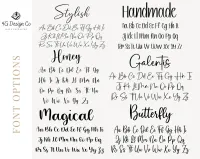 YG Design Co
FONT OPTIONS
Stylish
Aa Bb Cc Dd Ee Ff Gg Hh Ii
Jj Kk Ll Mm Nn Oo Pp Qq
Rr Ss Tt Uu Vv Ww Xx Yy Zz
Honey
Aa Bb Cc Dd Ee Ff Gg
Hh Ii Jj Kk Ll Mm Nn Oo
Pp Qq Rr Ss Tt Uu
Vv Ww Xx Yy Zz
Magical
Aa Bb Cc Dd Ee Ff Gg Hh Ii
Jj Kk Ll Mm Nn Oo Pp Qq Rr
Ss Tt Uu Vv Ww Xx Yy Zz
Handmade
Aa Bb Cc Dd Ee Ff Gg Hh Ii
Jj Kk Ll Mm Nn Oo Pp Qq
Rr Ss Tt Uu Vv Ww Xx Yy Zz
Galentis
Aa Bb Cc Dd Ee Ff Gg Hh Ii
Jj Kk Ll Mm Nn Oo Pp Qq
Rr Ss Tt Uu Vv Ww Xx Yy Zz
Butterfly
Aa Bb Cc Dd Ee Ff Gg Hh
Ii Jj Kk Ll Mm Nn Oo Pp Qq
Rr Ss Tt Uu Vv Ww Xx Yy Zz